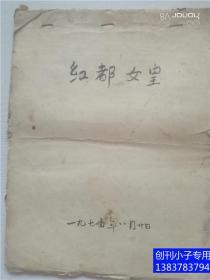 honor
V8
红都女皇
一九七 年八月廿日
创刊小子专用
1383783794